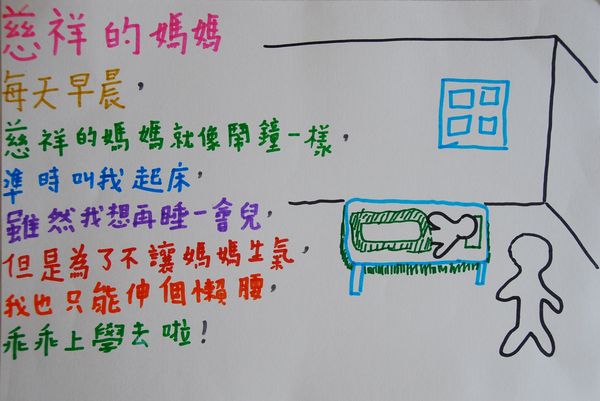 慈祥的媽媽
每天早晨，
慈祥的媽媽就像鬧鐘一樣，
準時叫我起床，
雖然我想再睡一會兒，
但是為了不讓媽媽生氣，
我也只能伸個懶腰，
乖乖上學去啦！